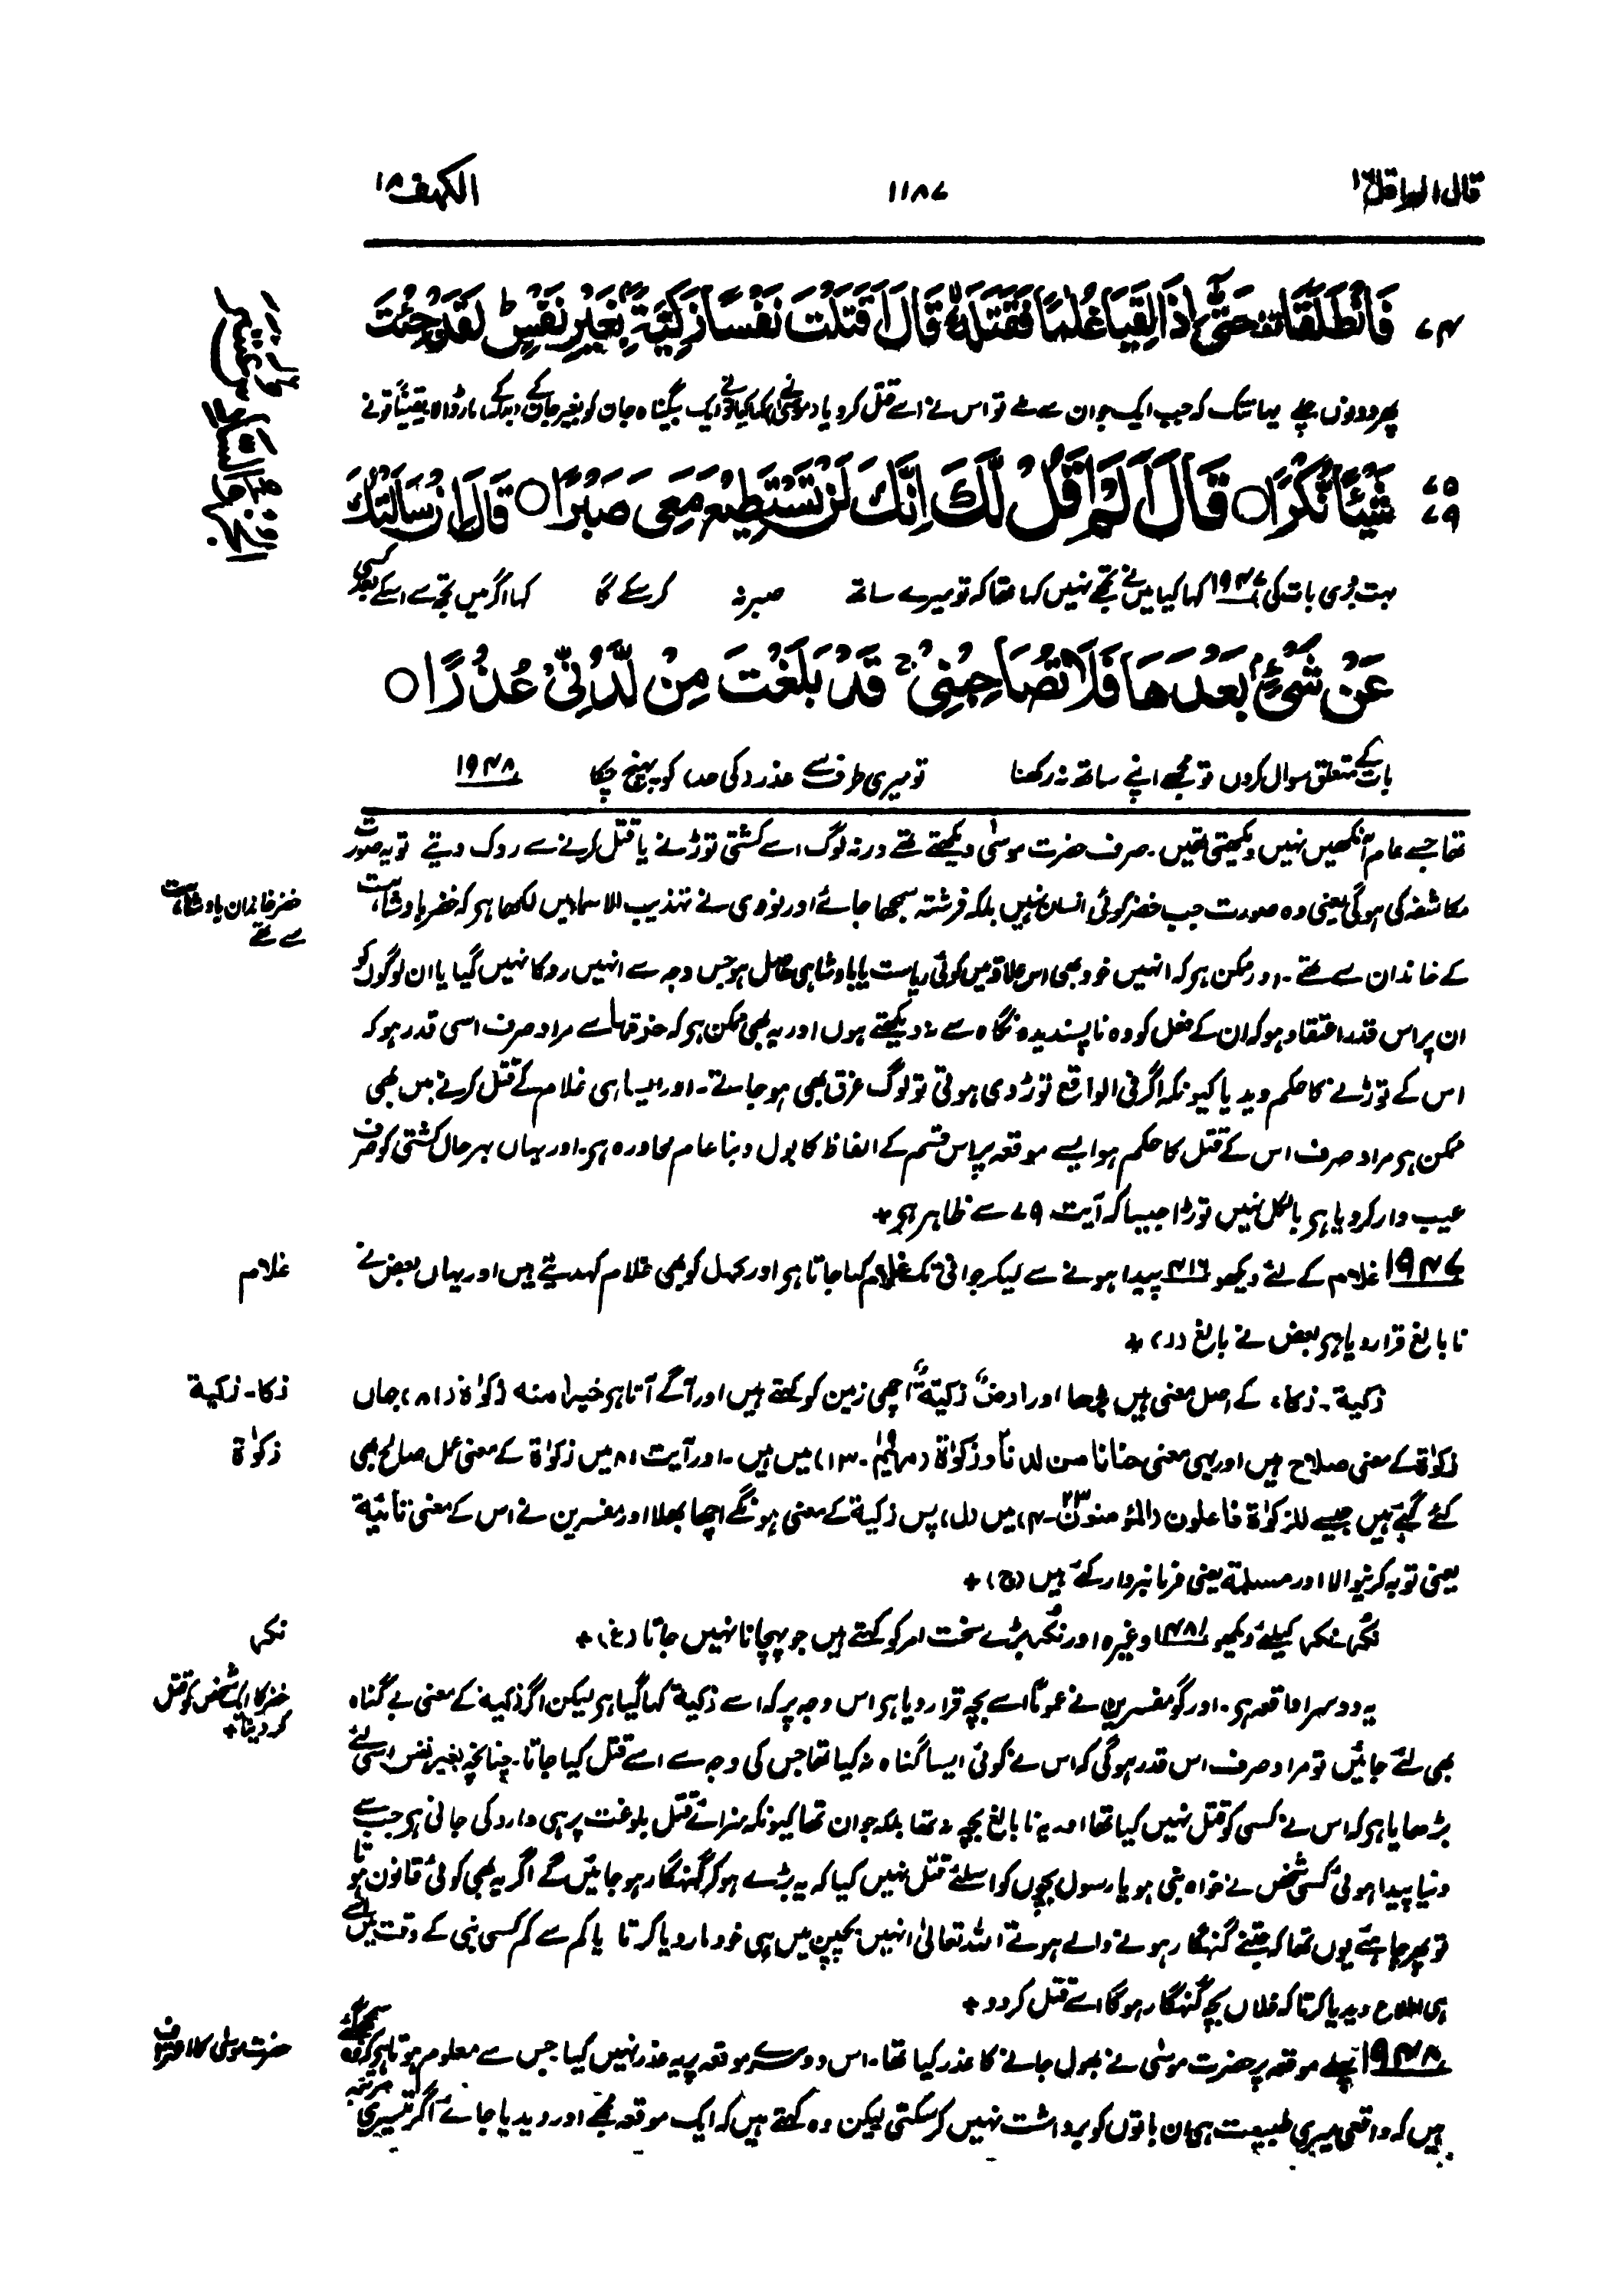 قال الم اقل ۱۶
۱۱۸۷
الکہف ۱۸
۷۴ فَانْطَلَقَا حَتّٰۤی اِذَا لَقِیَا غُلٰمًا فَقَتَلَهٗ قَالَ اَقَتَلْتَ نَفْسًا زَكِیَّةًۢ بِغَیْرِ نَفْسٍ لَقَدْ جِئْتَ
پھر دونوں چلے یہانتک کہ جب ایک جوان سے ملے تو اس نے اسے قتل کردیا (موسیٰ نے) کہا کیا تو نے ایک بیگناہ جان کو بغیر جان کے (بدلہ کے) مار ڈالا یقیناً تو نے
۷۵ ۷۶ شَیْئًا نُّكْرًا ○ قَالَ اَلَمْ اَقُلْ لَّكَ اِنَّكَ لَنْ تَسْتَطِیْعَ مَعِیَ صَبْرًا ○ قَالَ اِنْ سَاَلْتُكَ
بہت بُری بات کی ۱۹۴۷ کہا کیا میں نے تجھے نہیں کہا تھا کہ تو میرے ساتھ صبر نہ کرسکے گا کہا اگر میں تجھ سے اسکے بعد کسی
عَنْ شَیْءٍۭ بَعْدَهَا فَلَا تُصٰحِبْنِیْ ۚ قَدْ بَلَغْتَ مِنْ لَّدُنِّیْ عُذْرًا ○
بات کے متعلق سوال کروں تو مجھے اپنے ساتھ نہ رکھنا تو میری طرف سے عذر کی حد کو پہنچ چکا ۱۹۴۸
تھا جسے عام آنکھیں نہیں دیکھتی تھیں۔ صرف حضرت موسٰی دیکھتے تھے ورنہ لوگ اسے کشتی توڑنے یا قتل کرنے سے روک دیتے تو یہ صورت
مکاشفہ کی ہوگی یعنی وہ صورت جب خضر کوئی انسان نہیں بلکہ فرشتہ سمجھا جائے اور نووی نے تہذیب الاسماء میں لکھا ہر کہ خضر بادشاہت
خضر خاندان بادشاہت سے تھے
کے خاندان سے تھے۔ اور ممکن ہر کہ انہیں خود بھی اس علاقہ میں کوئی ریاست یا بادشاہی حاصل ہو جس وجہ سے انہیں روکا نہیں گیا یا ان لوگوں کو
ان پر اس قدر اعتقاد ہو کہ ان کے فعل کو وہ ناپسندیدہ نگاہ سے نہ دیکھتے ہوں اور یہ بھی ممکن ہر کہ خرقہا سے مراد صرف اسی قدر ہو کہ
اس کے توڑنے کا حکم دیدیا کیونکہ اگر فی الواقع توڑ دی ہوتی تو لوگ غرق بھی ہوجاتے۔ اور ایسا ہی غلام کے قتل کرنے میں بھی
ممکن ہر مراد صرف اس کے قتل کا حکم ہو ایسے موقعہ پر اس قسم کے الفاظ کا بول دینا عام محاورہ ہر۔ اور یہاں بہرحال کشتی کو صرف
عیب دار کردیا ہر بالکل نہیں توڑا جیسا کہ آیت ۷۹ سے ظاہر ہر +
۱۹۴۷ غلام کے لئے دیکھو ۴۱۶ پیدا ہونے سے لیکر جوانی تک غلام کہا جاتا ہر اور کہل کو بھی غلام کہدیتے ہیں اور یہاں بعض نے
غلام
نابالغ قرار دیا ہر بعض نے بالغ (ر) +
زکیة۔ زکاء کے اصل معنی ہیں بڑھا اور ارضٌ زکیةٌ اچھی زمین کو کہتے ہیں اور آگے آتا ہر خیرا منه زکوٰة (۸۱) جہاں
زکا۔ زکیة
زکوٰة کے معنی صلاح ہیں اور یہی معنی حنانا من لدنا و زکوٰة (مریم ۱۹۔۱۳) میں ہیں۔ اور آیت ۸۱ میں زکوٰة کے معنی عمل صالح بھی
زکوٰة
کئے گئے ہیں جیسے للزکوٰة فاعلون (المؤمنون ۲۳۔۴) میں (ل) پس زکیة کے معنی ہونگے اچھا بھلا اور مفسرین نے اس کے معنی تائبة
یعنی توبہ کرنیوالا اور مسلمة یعنی فرمانبردار کئے ہیں (ج) +
نکر نکر کیلئے دیکھو ۱۴۸۱ وغیرہ اور نکر بڑے سخت امر کو کہتے ہیں جو پہچانا نہیں جاتا (غ) +
نکر
یہ دوسرا واقعہ ہر۔ اور گو مفسرین نے عموماً اسے بچہ قرار دیا ہر اس وجہ پر کہ اسے زکیة کہا گیا ہر لیکن اگر زکیة کے معنی بے گناہ
خضر کا ایک شخص کو قتل کر دینا +
بھی لئے جائیں تو مراد صرف اس قدر ہوگی کہ اس نے کوئی ایسا گناہ نہ کیا تھا جس کی وجہ سے اسے قتل کیا جاتا۔ چنانچہ بغیر نفس اسی لئے
بڑھایا ہر کہ اس نے کسی کو قتل نہیں کیا تھا اور یہ نابالغ بچہ نہ تھا بلکہ جوان تھا کیونکہ سزائے قتل بلوغت پر ہی وارد کی جاتی ہر جب سے
دنیا پیدا ہوئی کسی شخص نے خواہ نبی ہو یا رسول بچوں کو اسلئے قتل نہیں کیا کہ یہ بڑے ہوکر گنہگار ہوجائیں گے اگر یہ بھی کوئی قانون ہوتا
تو پھر چاہئے یوں تھا کہ جتنے گنہگار ہونے والے ہوتے اللہ تعالیٰ انہیں بچپن میں ہی خود مار دیا کرتا یا کم سے کم کسی نبی کے وقت میں اسے
ہی اطلاع دیدیا کرتا کہ فلاں بچہ گنہگار ہوگا اسے قتل کردو +
۱۹۴۸ پہلے موقعہ پر حضرت موسٰی نے بھول جانے کا عذر کیا تھا۔ اس دوسرے موقعہ پر یہ عذر نہیں کیا جس سے معلوم ہوتا ہر کہ وہ سمجھ گئے
حضرت موسٰی کا اعتراف
ہیں کہ واقعی میری طبیعت ہی ان باتوں کو برداشت نہیں کرسکتی لیکن وہ کہتے ہیں کہ ایک موقعہ مجھے اور دیدیا جائے اگر تیسری مرتبہ